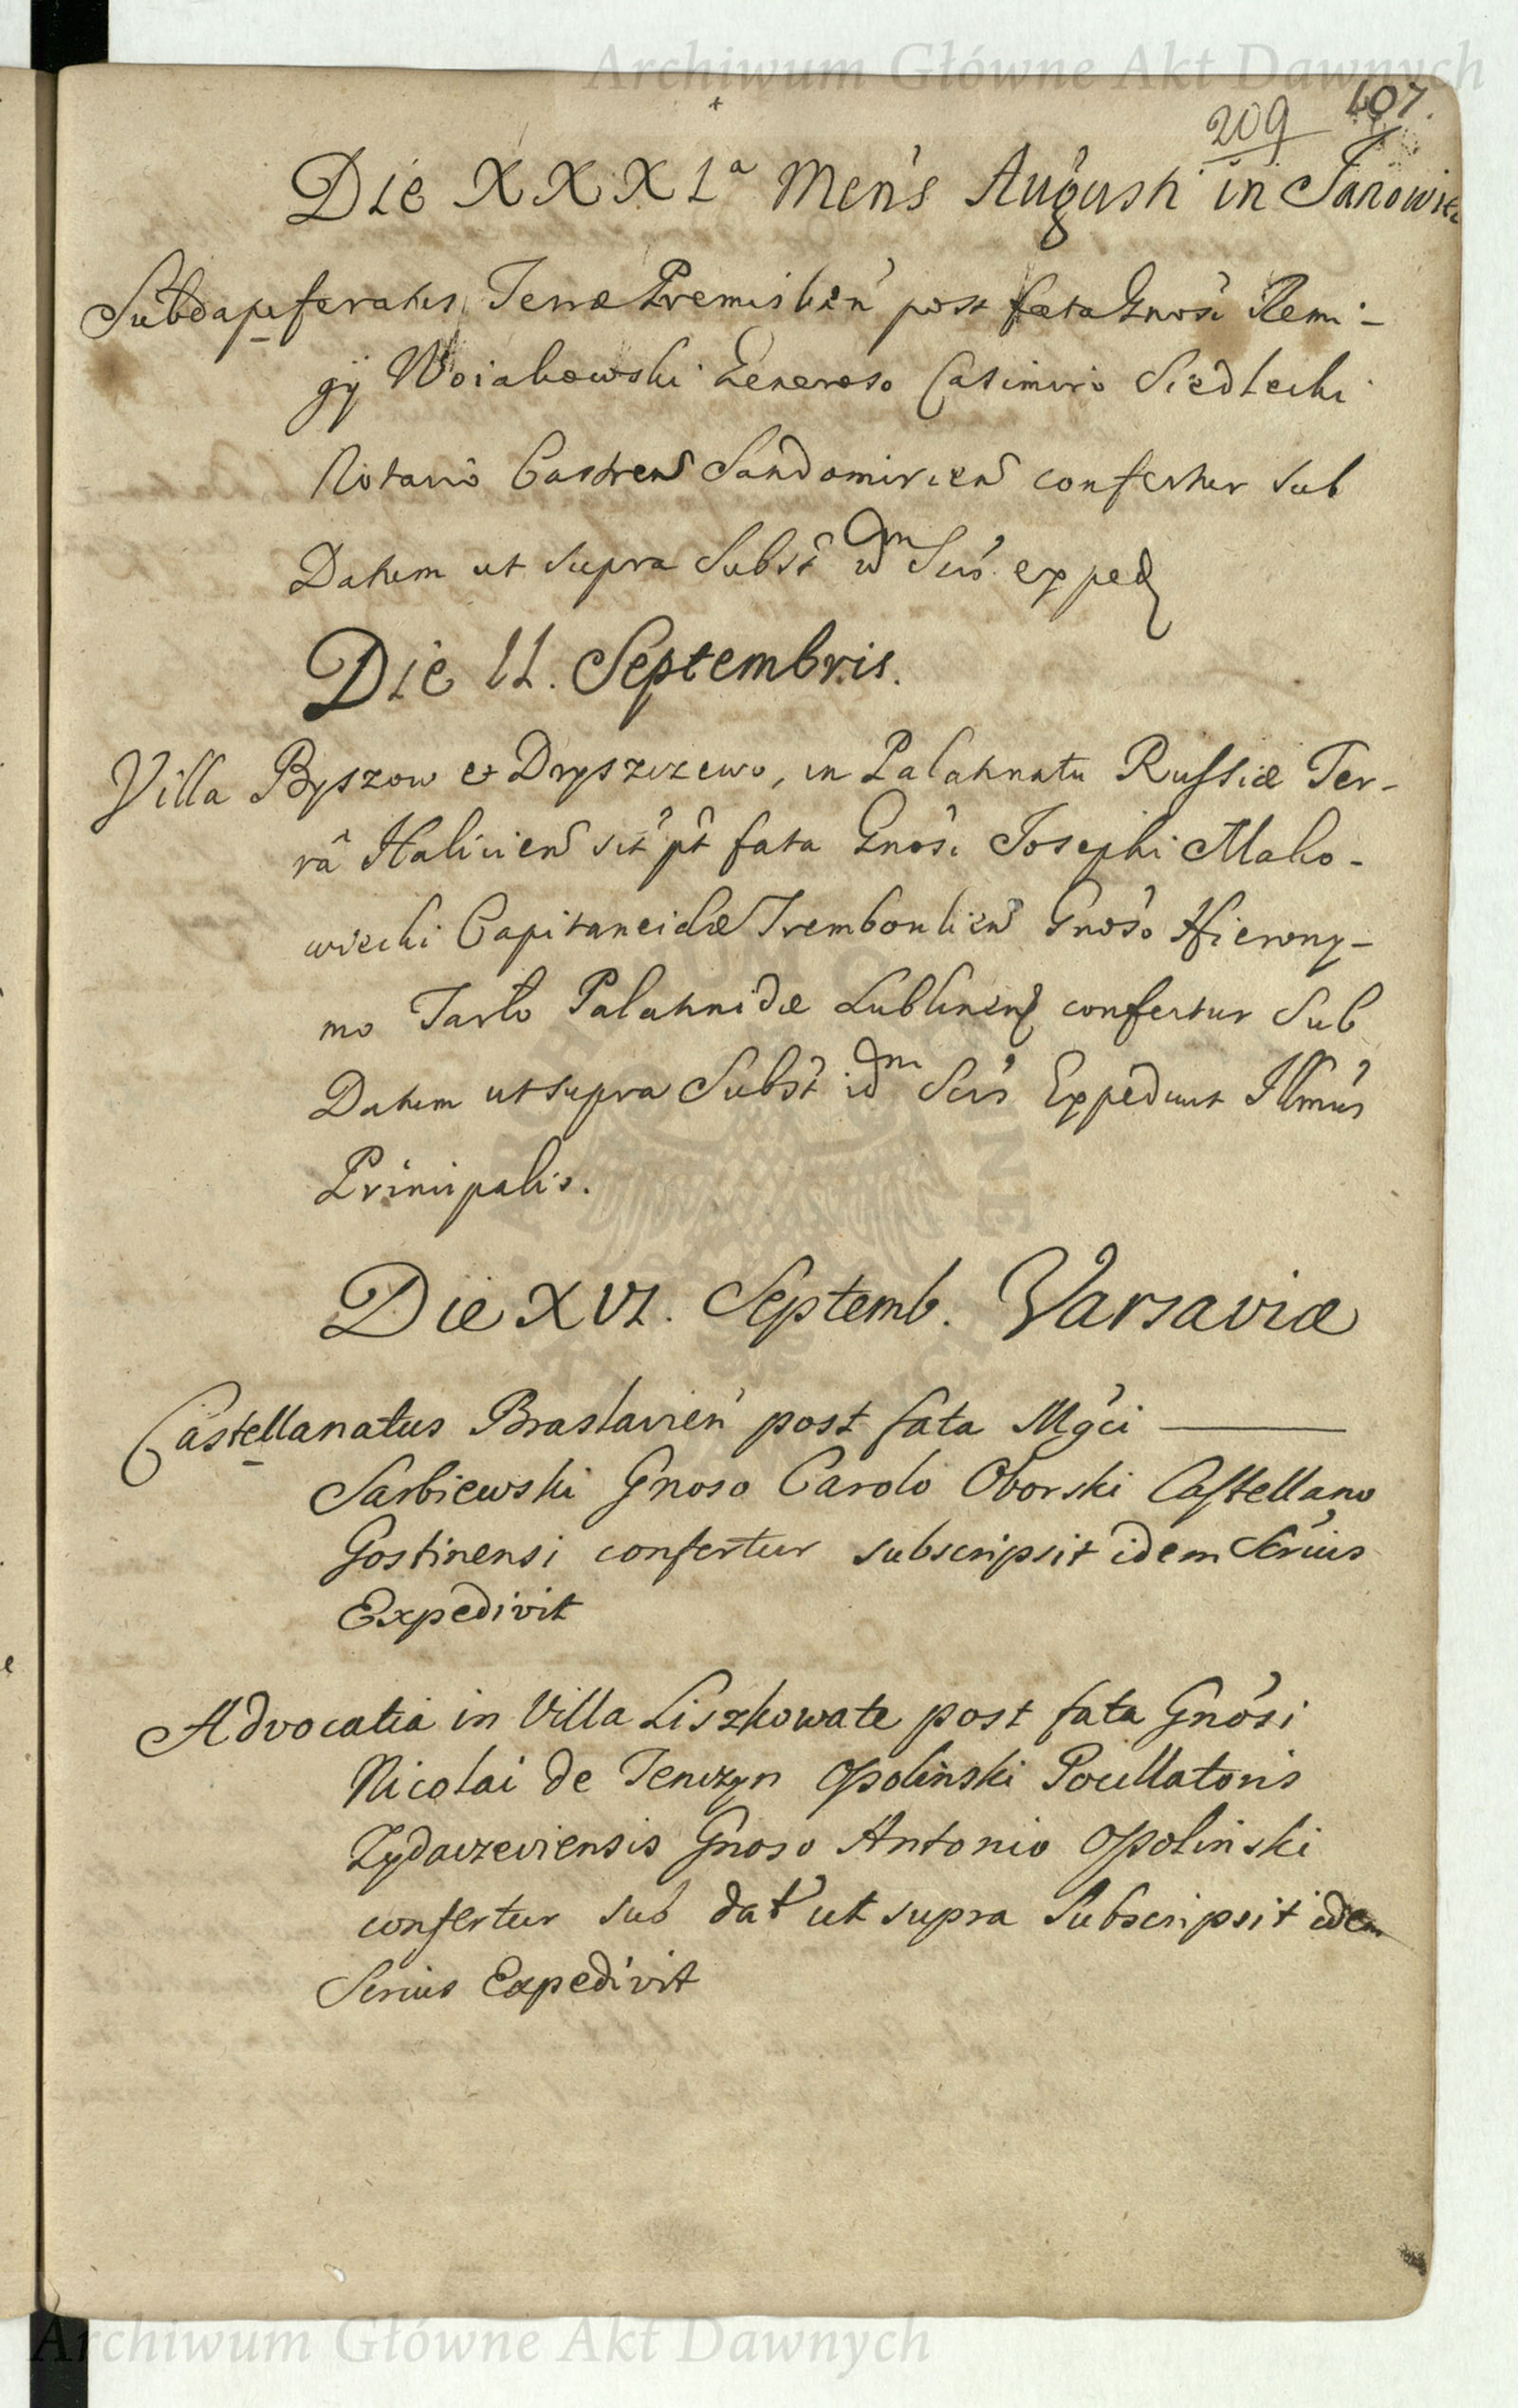 Archiwum Główne Akt Dawnych
209 407.
Die XXXIª Men's Augusti in Janowiec
Subdapiferatus Terræ Premislien' post fata Gnosi Remi-
gÿ Woiakowski Generoso Casimiro Siedlecki
Notario Castren Sandomirien confertur sub
Datum ut supra Subst idm Scis exped
Die II. Septembris.
Villa Byszow et Dryszczewo, in Palatinatu Russiæ Ter-
râ Halicien sit pt fata Gnosi Josephi Mako-
wiecki Capitaneidæ Trembonlien Gnoso Hierony-
mo Tarło Palatinidæ Lublinen confertur Sub
Datum ut supra Subst idm Scis Expediunt Illmus
Principalis.
Die XVI. Septemb. Varsaviæ
Castellanatus Braslavien' post fata Mgci
Sarbiewski Gnoso Carolo Oborski Castellano
Gostinensi confertur subscripsit idem Scrius
Expedivit
Advocatia in Villa Liszkowate post fata Gnosi
Nicolai de Tenczyn Opolinski Pocillatoris
Zydaczeviensis Gnoso Antonio Opolinski
confertur sub dat' ut supra Subscripsit idem
Scrius Expedivit
Archiwum Główne Akt Dawnych